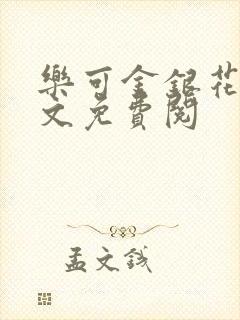 樂可金銀花
文免費閱
孟文錢